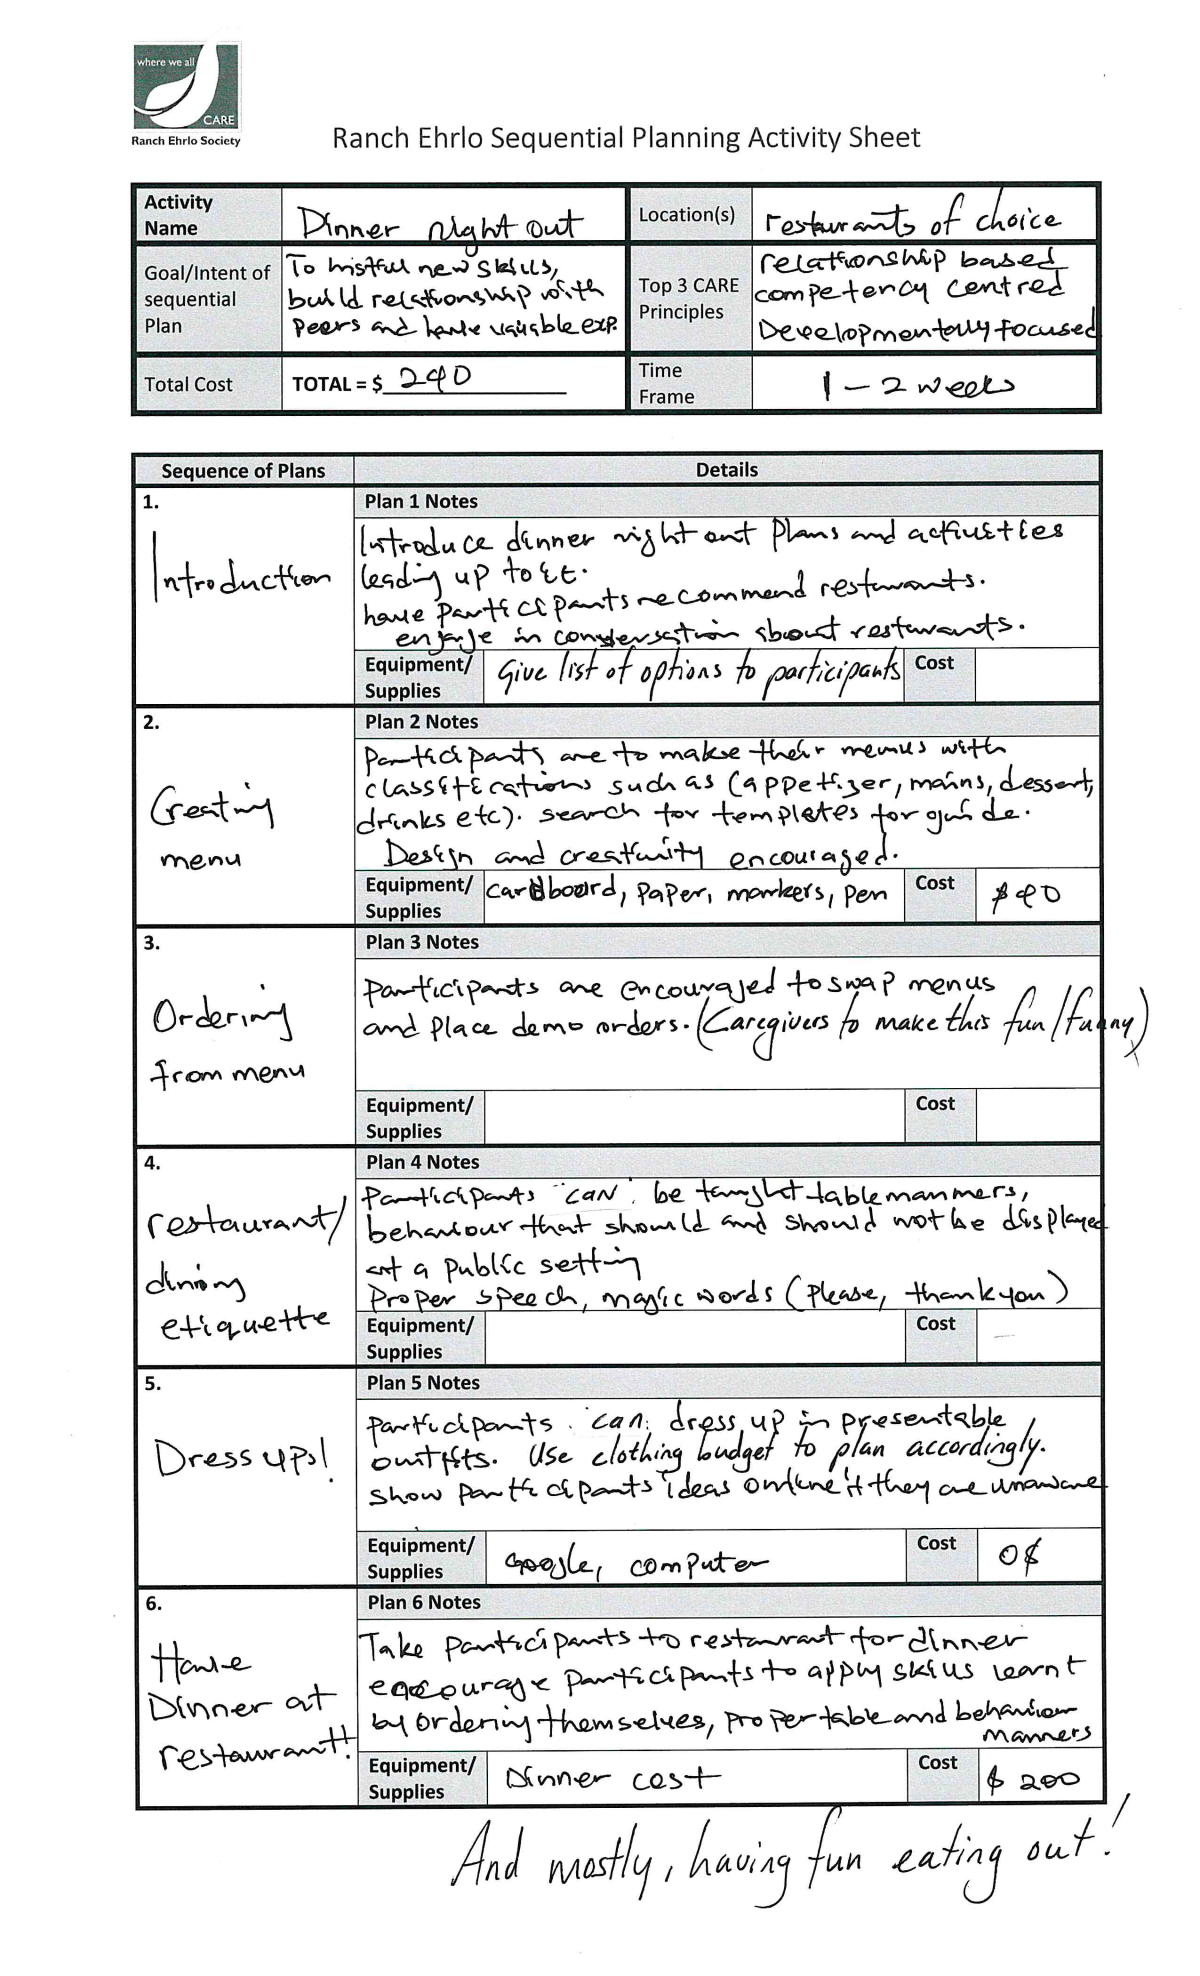 where we all
CARE
Ranch Ehrlo Society
Ranch Ehrlo Sequential Planning Activity Sheet
Activity Name
Dinner night out
Location(s)
restaurants of choice
Goal/Intent of sequential Plan
To instful new skills,
build relationship with
peers and have valuable exp.
Top 3 CARE Principles
relationship based
competency centred
Developmentally focused
Total Cost
TOTAL = $ 240
Time Frame
1 – 2 weeks
Sequence of Plans
Details
1.
Introduction
Plan 1 Notes
Introduce dinner night out plans and activities
leading up to it.
have participants recommend restaurants.
engage in conversation about restaurants.
Equipment/ Supplies
Give list of options to participants
Cost
2.
Creating
menu
Plan 2 Notes
Participants are to make their menus with
classifications such as (appetizer, mains, dessert,
drinks etc). search for templates for guide.
Design and creativity encouraged.
Equipment/ Supplies
cardboard, paper, markers, pen
Cost
$40
3.
Ordering
from menu
Plan 3 Notes
participants are encouraged to swap menus
and place demo orders. (Caregivers to make this fun/funny)
Equipment/ Supplies
Cost
4.
restaurant/
dining
etiquette
Plan 4 Notes
Participants "can" be taught table manners,
behaviour that should and should not be displayed
at a public setting
Proper speech, magic words (please, thank you)
Equipment/ Supplies
Cost
5.
Dress ups!
Plan 5 Notes
participants can dress up in presentable
outfits. Use clothing budget to plan accordingly.
show participants ideas online if they are unaware
Equipment/ Supplies
Google, computer
Cost
0$
6.
Have
Dinner at
restaurant!
Plan 6 Notes
Take participants to restaurant for dinner
encourage participants to apply skills learnt
by ordering themselves, proper table and behaviour
manners
Equipment/ Supplies
Dinner cost
Cost
$ 200
And mostly, having fun eating out!